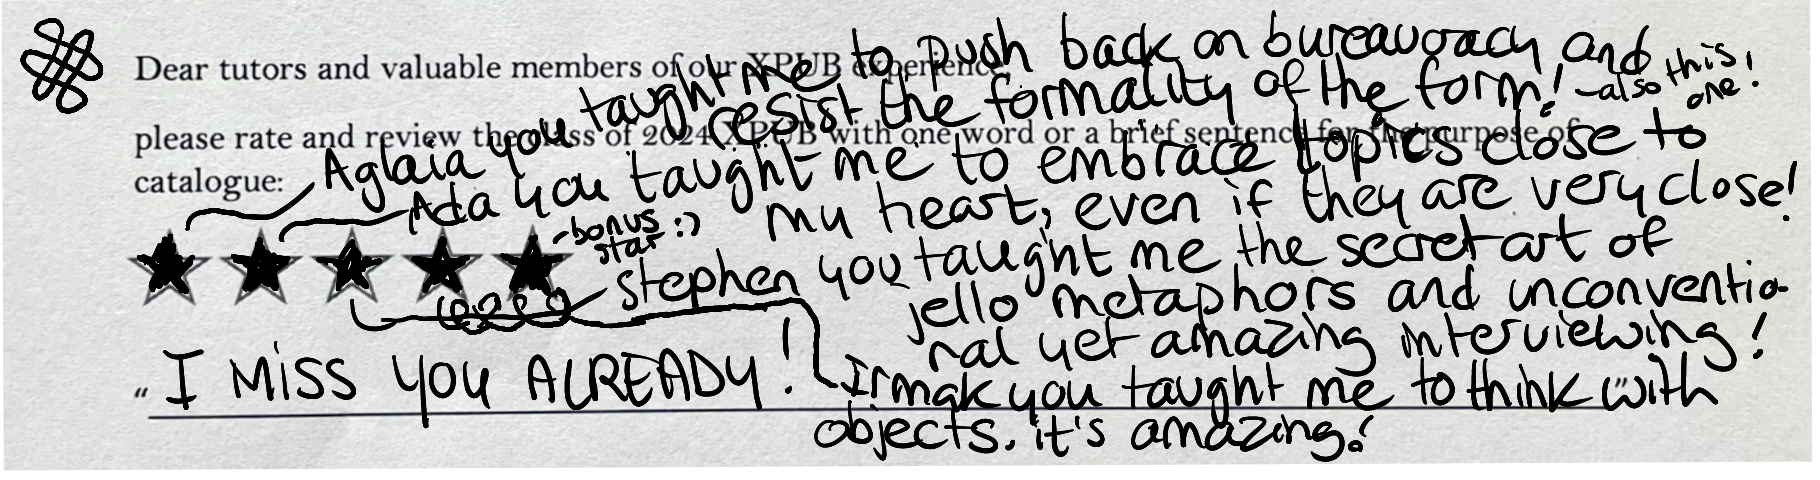 Dear tutors and valuable members of our XPUB experience
please rate and review the class of 2024 XPUB with one word or a brief sentence for the purpose of
catalogue:
Aglaia you taught me to push back on bureauoracy and
resist the formality of the form! -also this one!
Ada you taught me to embrace topics close to
my heart, even if they are very close!
-bonus
star :)
Stephen you taught me the secret art of
jello metaphors and unconventio-
nal yet amazing interviewing!
Irmak you taught me to think with
objects. it's amazing!
"I MISS YOU ALREADY!"